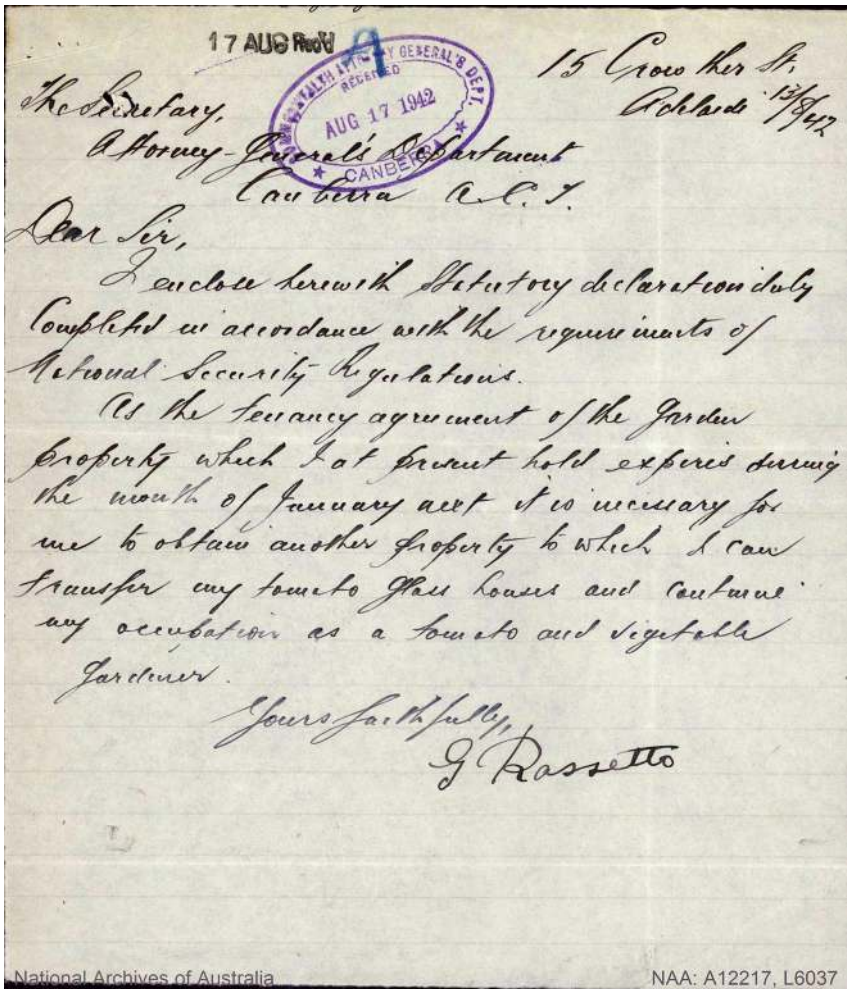 17 AUG Rec'd
COMMONWEALTH ATTORNEY GENERAL'S DEPT.
RECEIVED
AUG 17 1942
★ CANBERRA ★
15 Crowther St.
Adelaide 13/8/42
The Secretary,
Attorney-General's Department
Canberra A.C.T.
Dear Sir,
I enclose herewith Statutory declaration duly
Completed in accordance with the requirements of
National Security Regulations.
As the tenancy agreement of the Garden
property which I at present hold expires during
the month of January next it is necessary for
me to obtain another property to which I can
transfer my tomato glass houses and continue
my occupation as a tomato and vegetable
gardener.
Yours faithfully,
G Rossetto
National Archives of Australia
NAA: A12217, L6037